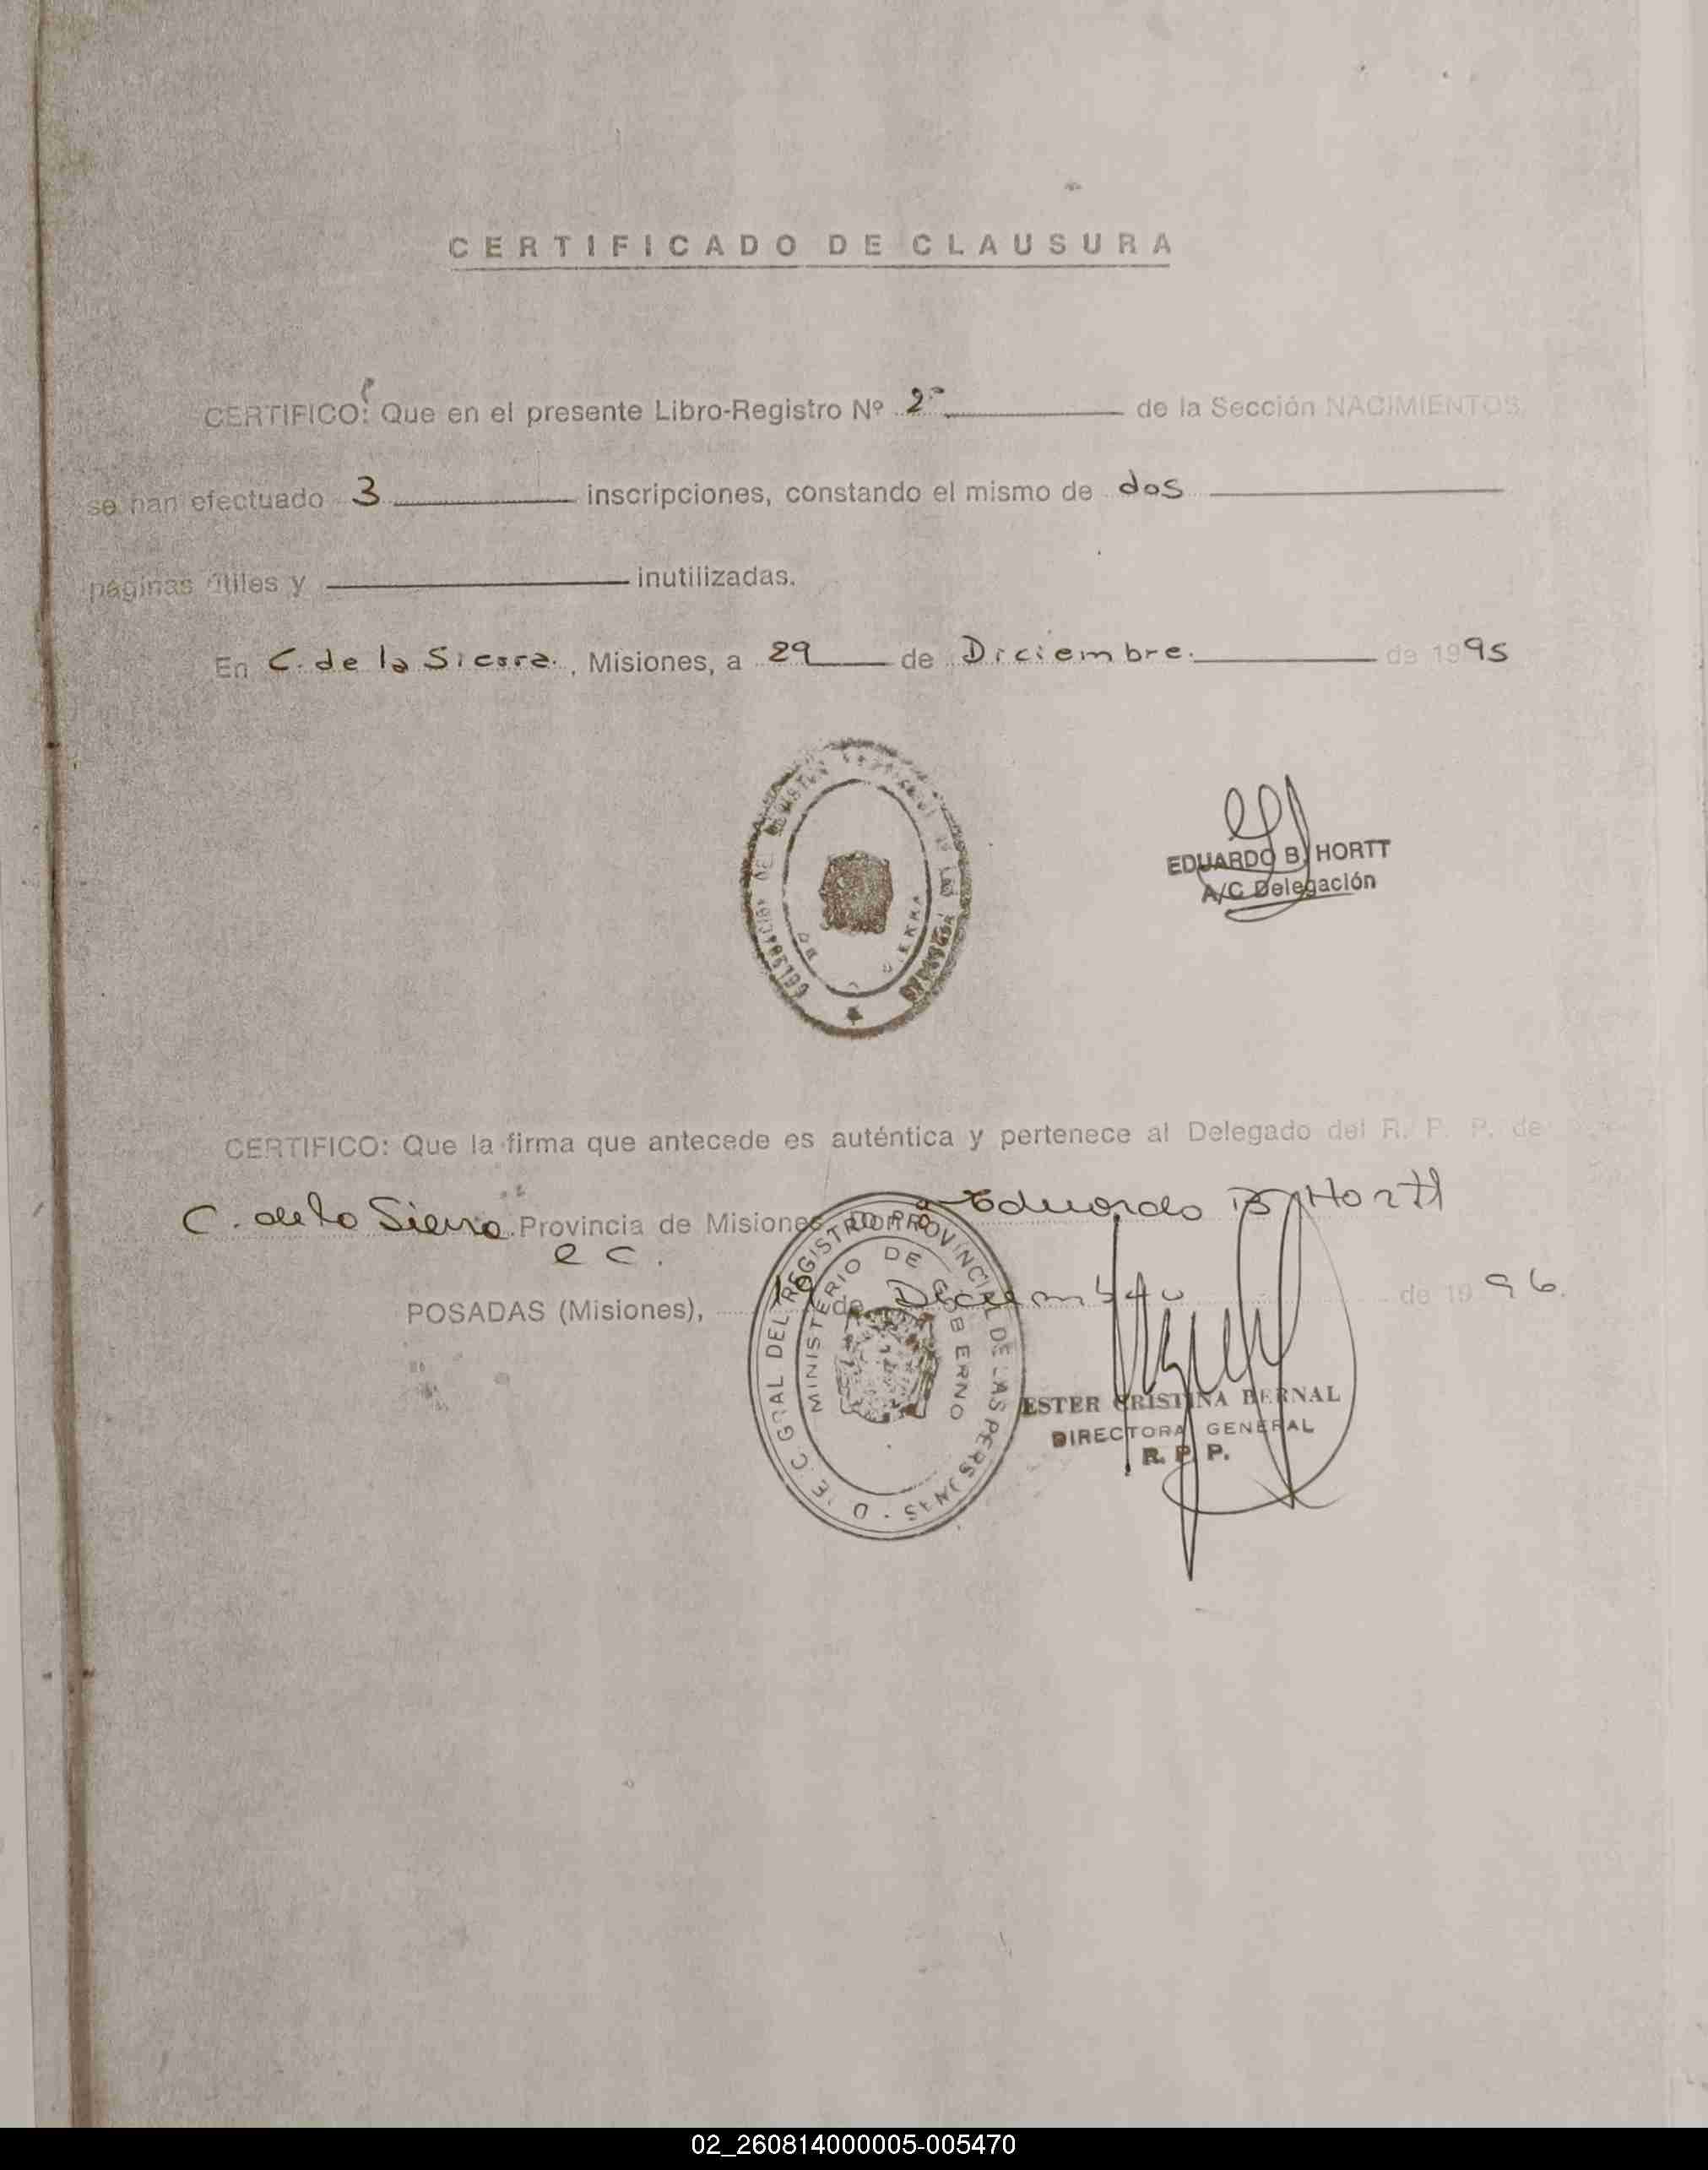 CERTIFICADO DE CLAUSURA
CERTIFICO: Que en el presente Libro-Registro Nº 2º de la Sección NACIMIENTOS,
se han efectuado 3 inscripciones, constando el mismo de dos
páginas útiles y inutilizadas.
En C. de la Sierra., Misiones, a 29 de Diciembre. de 1995
EDUARDO B. HORTT
A/C Delegación
CERTIFICO: Que la firma que antecede es auténtica y pertenece al Delegado del R. P. P. de
C. de la Sierra Provincia de Misiones, Eduardo B Hortt
POSADAS (Misiones), de Diciembre de 1996.
DIREC. GRAL. DEL REGISTRO PROVINCIAL DE LAS PERSONAS
MINISTERIO DE GOBIERNO
ESTER CRISTINA BERNAL
DIRECTORA GENERAL
R. P. P.
02_260814000005-005470